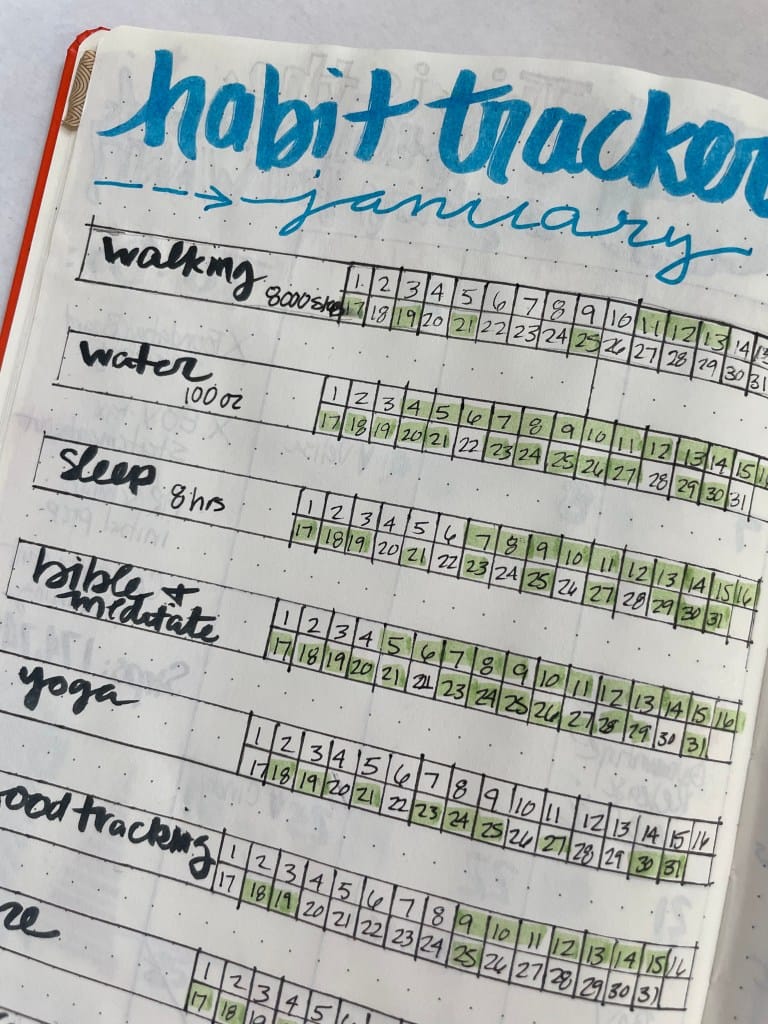 habit tracker
january
walking 1 2 3 4 5 6 7 8 9 10 11 12 13 14
8000 steps 17 18 19 20 21 22 23 24 25 26 27 28 29 30 31
water 1 2 3 4 5 6 7 8 9 10 11 12 13 14 15
100 oz 17 18 19 20 21 22 23 24 25 26 27 28 29 30 31
sleep 8 hrs 1 2 3 4 5 6 7 8 9 10 11 12 13 14 15 16
17 18 19 20 21 22 23 24 25 26 27 28 29 30 31
bible + 1 2 3 4 5 6 7 8 9 10 11 12 13 14 15 16
meditate 17 18 19 20 21 22 23 24 25 26 27 28 29 30 31
yoga 1 2 3 4 5 6 7 8 9 10 11 12 13 14 15 16
17 18 19 20 21 22 23 24 25 26 27 28 29 30 31
ood tracking 1 2 3 4 5 6 7 8 9 10 11 12 13 14 15 16
17 18 19 20 21 22 23 24 25 26 27 28 29 30 31
1 2 3 4 5
17 18 19